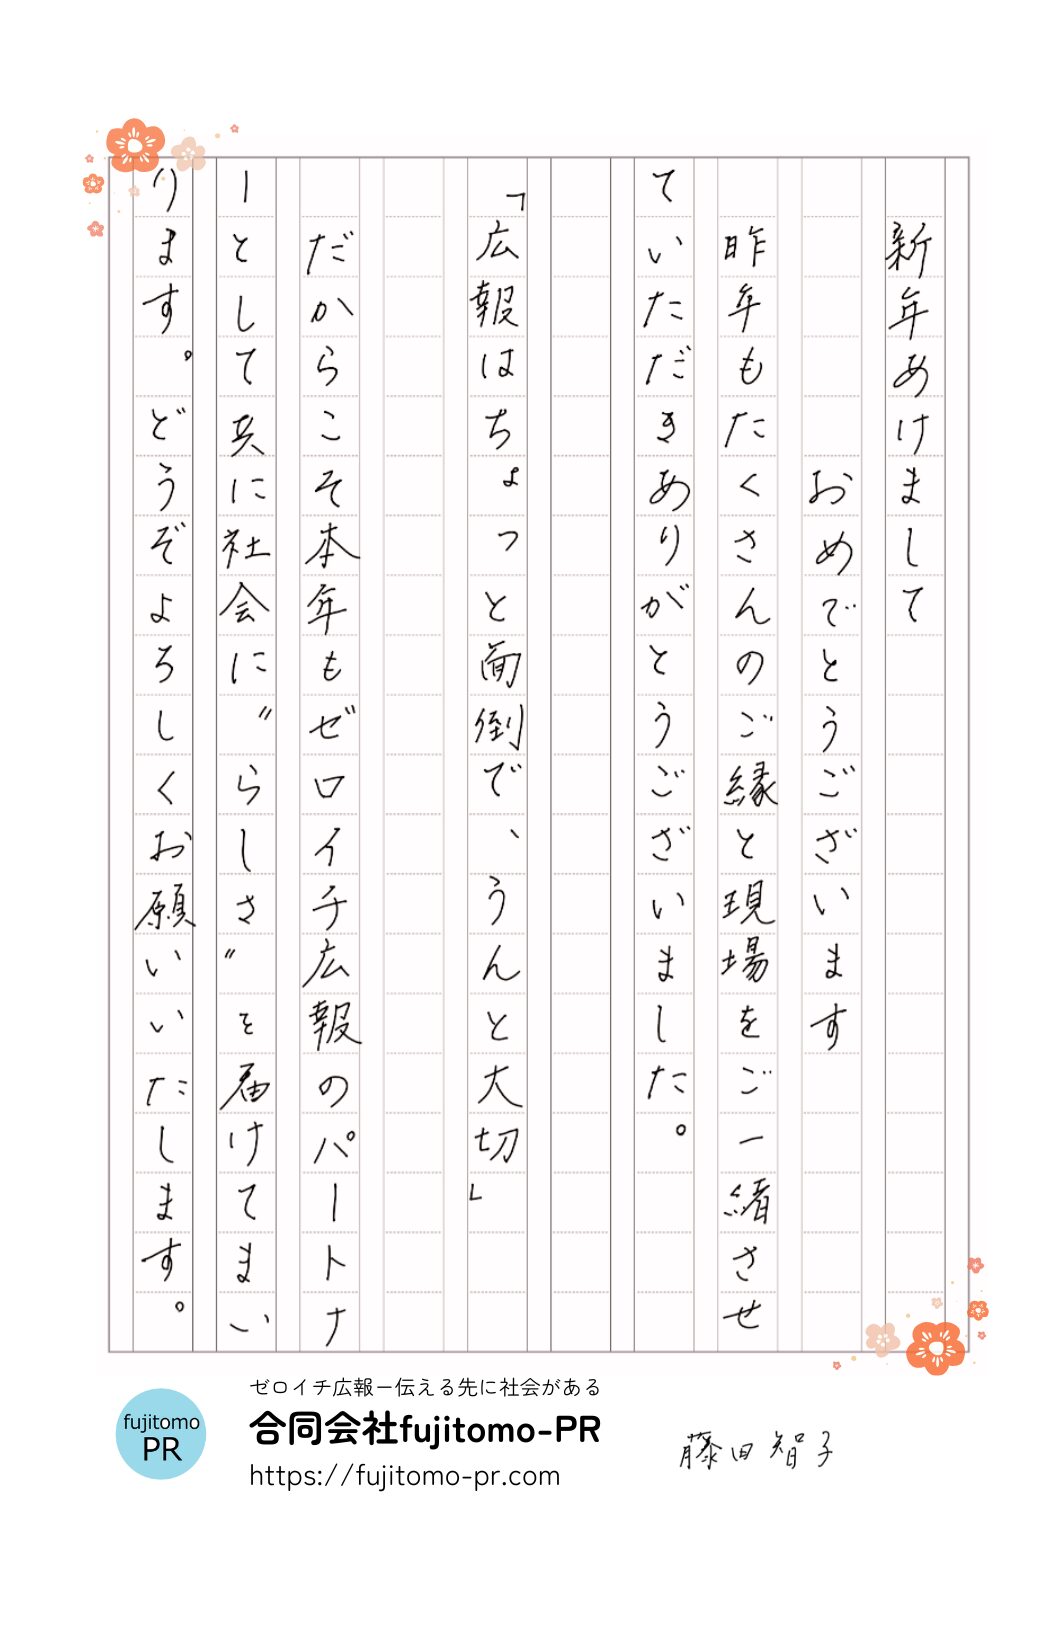 新年あけまして
おめでとうございます
昨年もたくさんのご縁と現場をご一緒させ
ていただきありがとうございました。
「広報はちょっと面倒で、うんと大切」
だからこそ本年もゼロイチ広報のパートナ
ーとして共に社会に〝らしさ〟を届けてまい
ります。どうぞよろしくお願いいたします。
fujitomo
PR
ゼロイチ広報－伝える先に社会がある
合同会社fujitomo-PR
https://fujitomo-pr.com
藤田智子